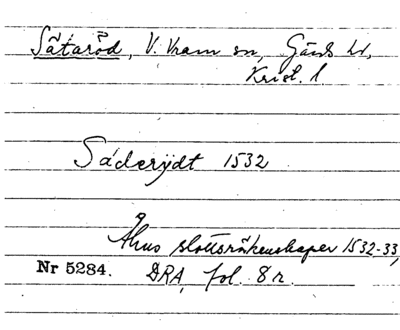 Sätaröd, V. Vram sn, Gärds hd,
Krist. l.
Säderydt 1532
Åhus slottsräkenskaper 1532-33,
Nr 5284. DRA, fol. 8 r.